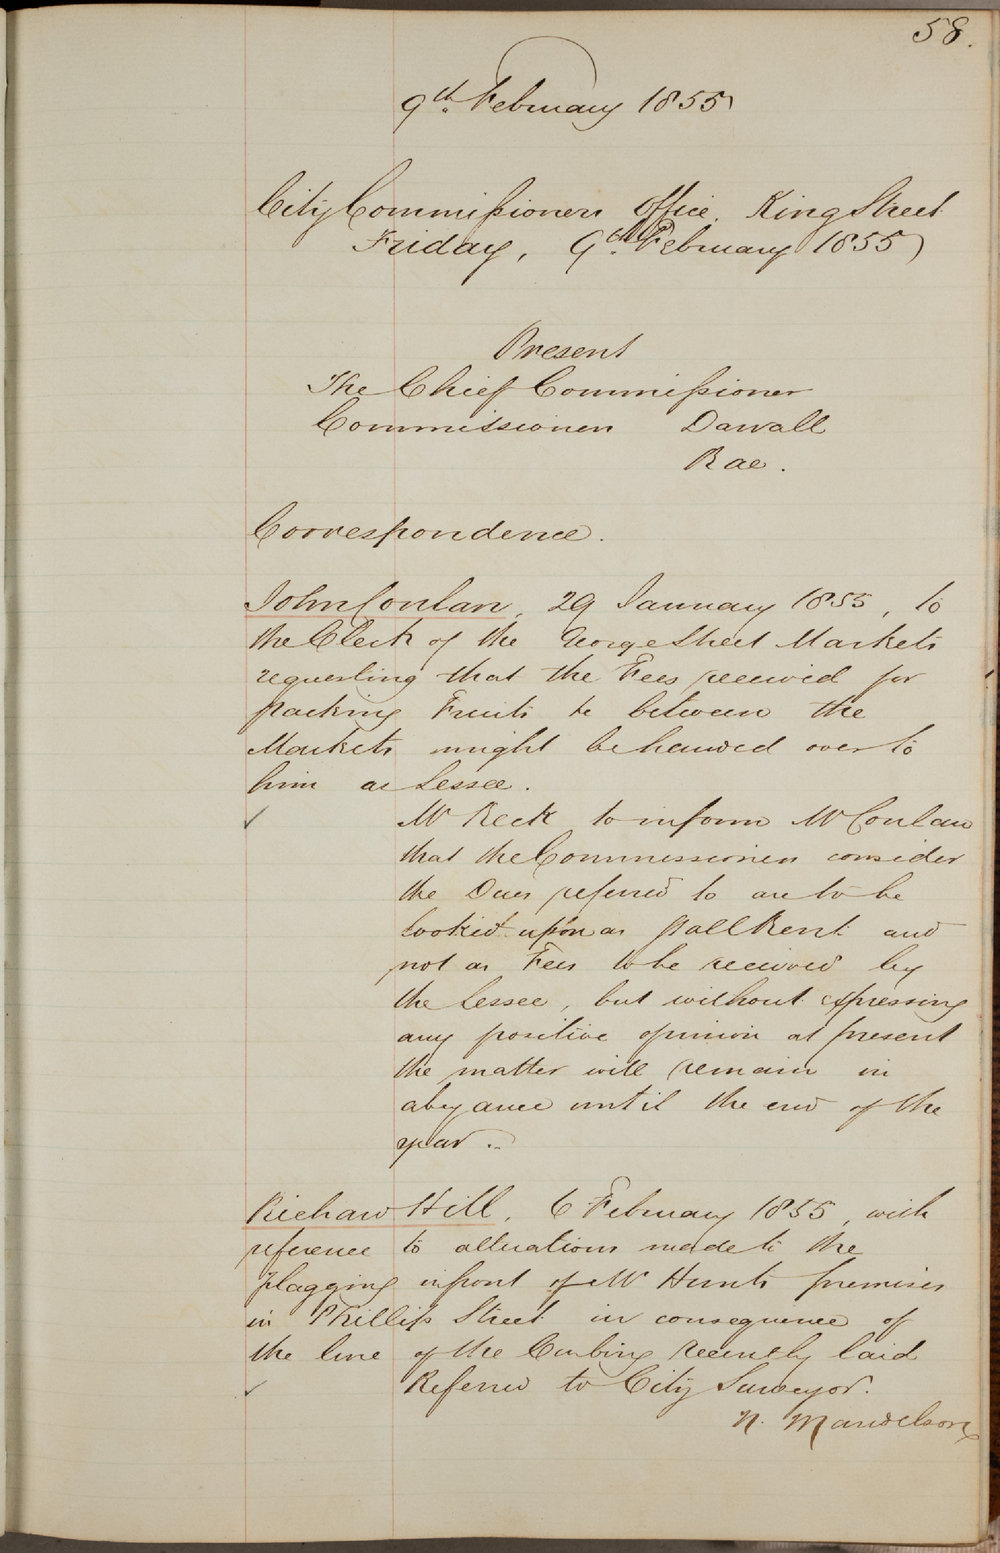 58.
9th February 1855
City Commissioners Office. King Street
Friday, 9th February 1855
Present
The Chief Commissioner
Commissioners Darvall
Rae.
Correspondence.
John Conlan, 29 January 1855, to
the Clerk of the George Street Markets
requesting that the Fees received for
packing Fruits &c between the
Markets might be handed over to
him as Lessee.
Mr Reck to inform Mr Conlan
that the Commissioners consider
the Dues referred to are to be
looked upon as Stall Rent and
not as Fees to be received by
the Lessee, but without expressing
any positive opinion at present
the matter will remain in
abeyance until the end of the
year.
Richard Hill, 6 February 1855, with
reference to alterations made to the
flagging in front of Mr Hunts premises
in Phillip Street in consequence of
the line of the Curbing recently laid
Referred to City Surveyor.
N. Mandelson